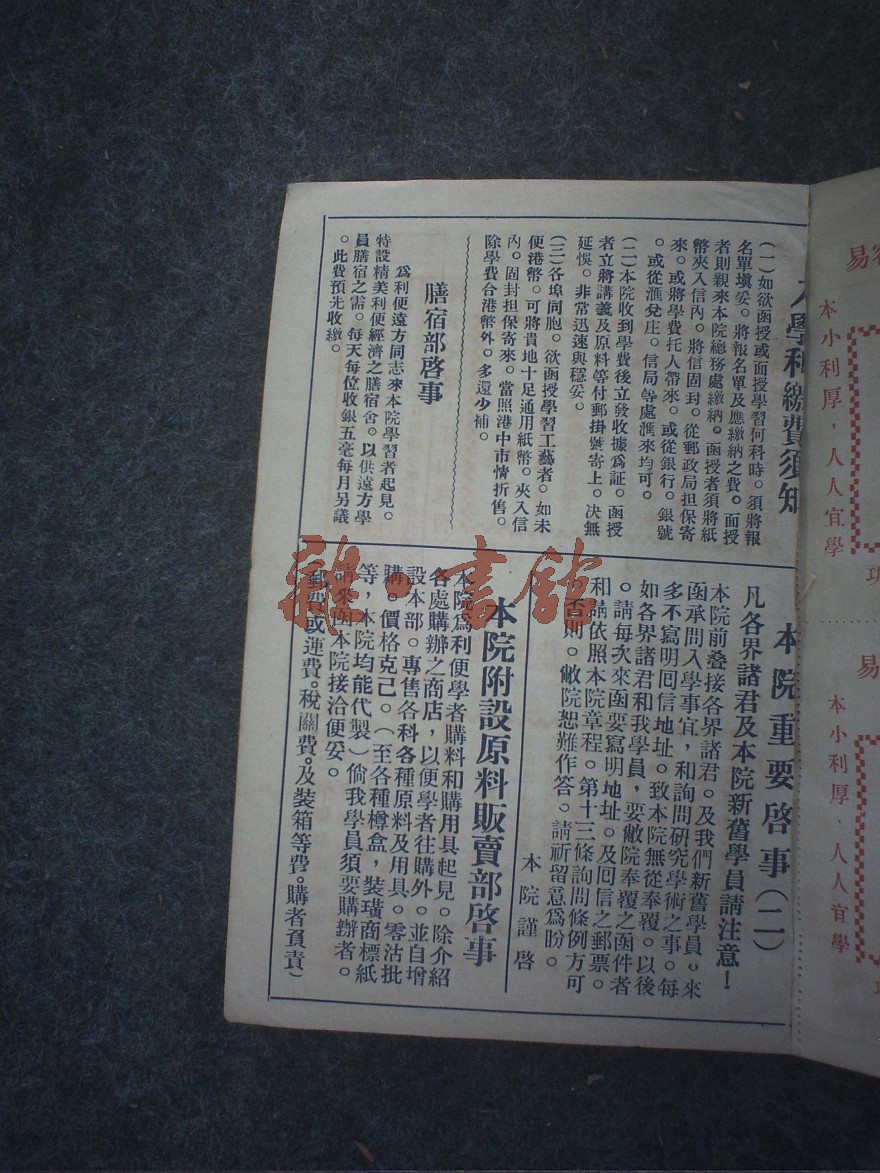 入學和繳費須知
(一)如欲函授或面授學習何科時。須將報
名單塡妥。將報名單及應繳納之費。面授
者則親來本院總務處繳納。函授者須將紙
幣夾入信內。將信固封。從郵政局担保寄
來。或將學費托人帶來。或從銀行。銀號
。或從滙兌庄。信局等處滙來均可。
(二)本院收到學費後立發收據爲証。函授
者立將講義及原料等付郵掛號寄上。決無
延悞。非常迅速與穩妥。
(三)各埠同胞。欲函授學習工藝者。如未
便港幣。可將貴地十足通用紙幣。夾入信
內。固封担保寄來。當照港中市情折售。
除學費合港幣外。多還少補。
膳宿部啓事
爲利便遠方同志來本院學習者起見。
特設精美利便經濟之膳宿舍。以供遠方學
員膳宿之需。每天每位收銀五毫每月另議
。此費預先收繳。
本院重要啓事(二)
凡各界諸君及本院新舊學員請注意!
本院前叠接各界諸君。及我們新舊學員。來
函承問入學事宜,和詢問研究學術之事。每
多不寫明囘信地址。致本院無從奉覆。以後
如各界諸君和我學員,要敝院奉覆之函件者
。請每次來函要寫明地址。及囘信之郵票。
和縣依照本院章程。第十三條詢問條例方可
。否則。敝院恕難作答。請祈留意爲盼。
本院謹啓
本院附設原料販賣部啓事
本院爲利便學者購料和購用具起見。除介紹
各處購辦之商店,以便學者往購外。並自增
設本部。專售各科各種原料及用具。零沽批
購。價格克己。(至各種樽盒,裝璜商標紙
等,本院均能代製)倘我學員須要購辦者。
請來函本院接洽便妥。
(郵費或運費。稅關費。及裝箱等費。購者負責)
易
本小利厚,人人宜學
易
本小利厚,人人宜學
雜·書館